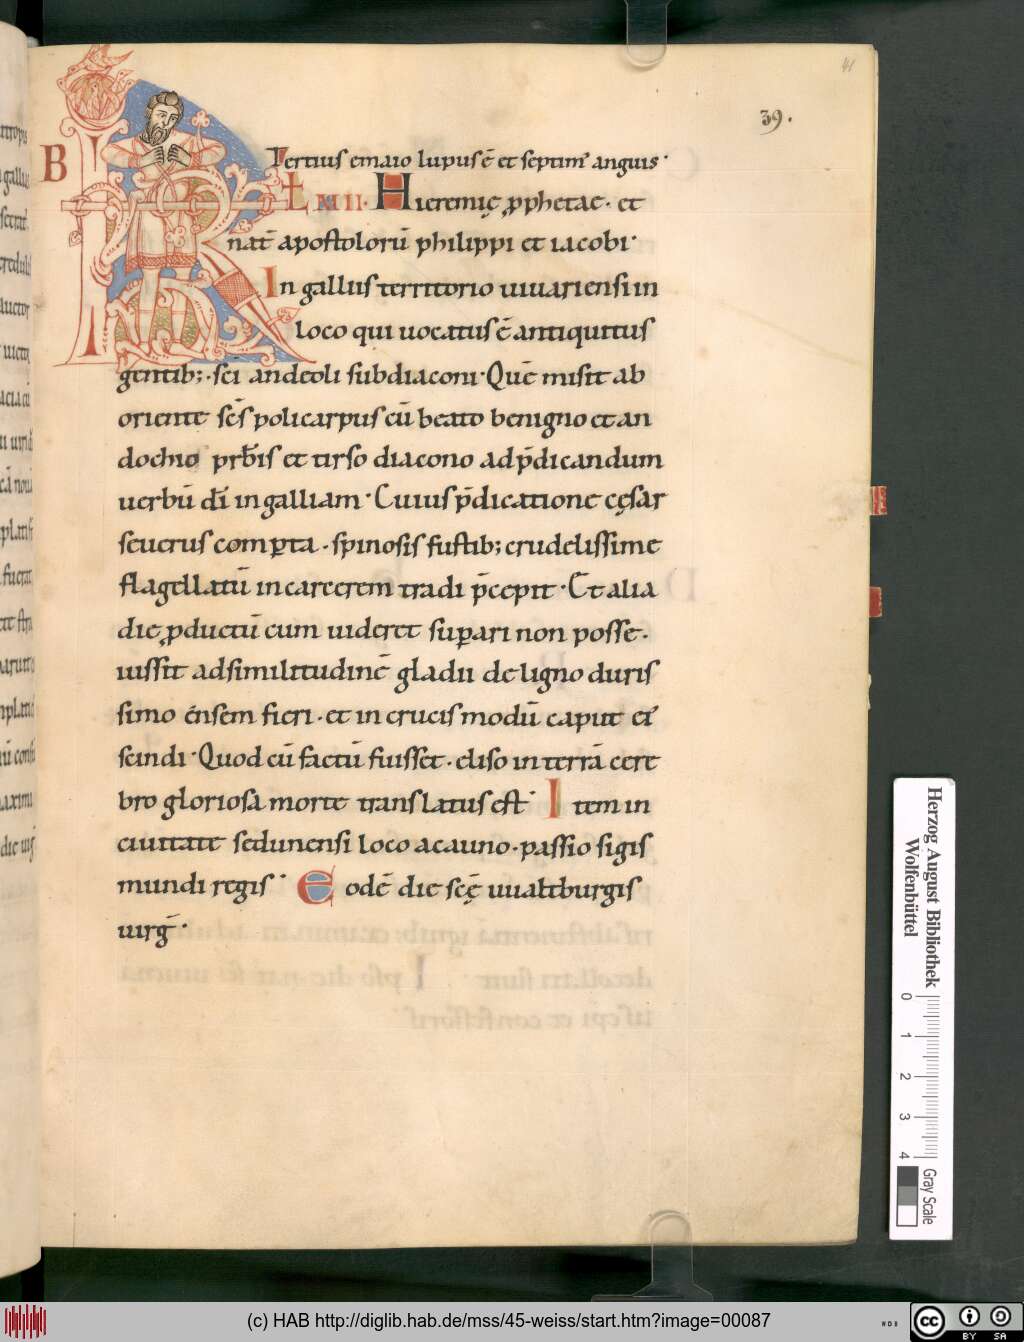 41
39.
B
Tertius emaio lupus ē et septim᾽ anguis·
KL MII· Hieremię ꝓphetae· et
nat̄ apostolorū philippi et iacobi·
In gallus territorio uiuariensi in
loco qui uocatus ē antiquitus
gentib;· sc̄i andeoli subdiaconi· Quē misit ab
oriente sc̄s policarpus cū beato benigno et an
dochio prb̄is et tirso diacono ad p̄dicandum
uerbū dī in galliam· Cuius p̄dicatione cęsar
seuerus comꝑta· spinosis fustib; crudelissime
flagellatū in carcerem tradi p̄cepit· Et alia
die ꝓductū cum uideret suꝑari non posse·
iussit ad similitudinē gladii de ligno duris
simo ensem fieri· et in crucis modū caput ei᾽
scindi· Quod cū factū fuisset· eliso in terrā cere
bro gloriosa morte translatus est· Item in
ciuitate sedunensi loco acauno· passio sigis
mundi regis· Eodē die sc̄ę uualtburgis
uirḡ·
Herzog August Bibliothek
Wolfenbüttel
0 1 2 3 4
Gray Scale
(c) HAB http://diglib.hab.de/mss/45-weiss/start.htm?image=00087
cc BY SA